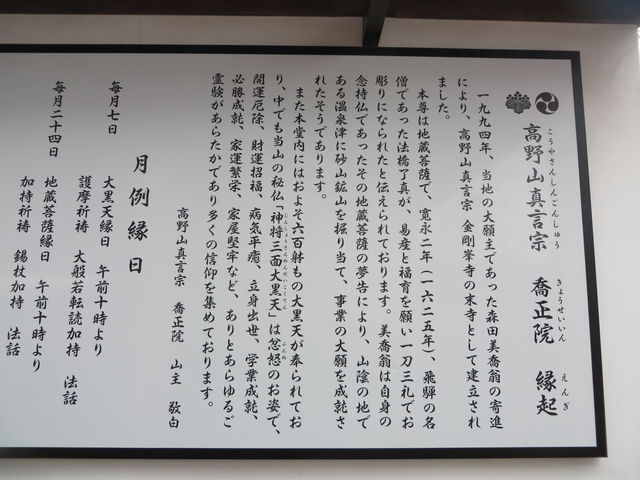 高野山真言宗 喬正院 縁起
こうやさんしんごんしゅう きょうせいいん えんぎ
一九九四年、当地の大願主であった森田美喬翁の寄進
により、高野山真言宗 金剛峯寺の末寺として建立され
ました。
本尊は地蔵菩薩で、寛永二年(一六二五年)、飛騨の名
僧であった法橋了真が、易産と福育を願い一刀三礼でお
彫りになられたと伝えられております。美喬翁は自身の
念持仏であったその地蔵菩薩の夢告により、山陰の地で
ある温泉津に砂山鉱山を掘り当て、事業の大願を成就さ
れたそうであります。
また本堂内にはおよそ六百躰もの大黒天が奉られてお
り、中でも当山の秘仏「神将三面大黒天」は忿怒のお姿で、
じんしょうさんめんだいこくてん ふんぬ
開運厄除、財運招福、病気平癒、立身出世、学業成就、
必勝成就、家運繁栄、家屋堅牢など、ありとあらゆるご
霊験があらたかであり多くの信仰を集めております。
高野山真言宗 喬正院 山主 敬白
月例縁日
毎月七日 大黒天縁日 午前十時より
護摩祈祷 大般若転読加持 法話
毎月二十四日 地蔵菩薩縁日 午前十時より
加持祈祷 錫杖加持 法話